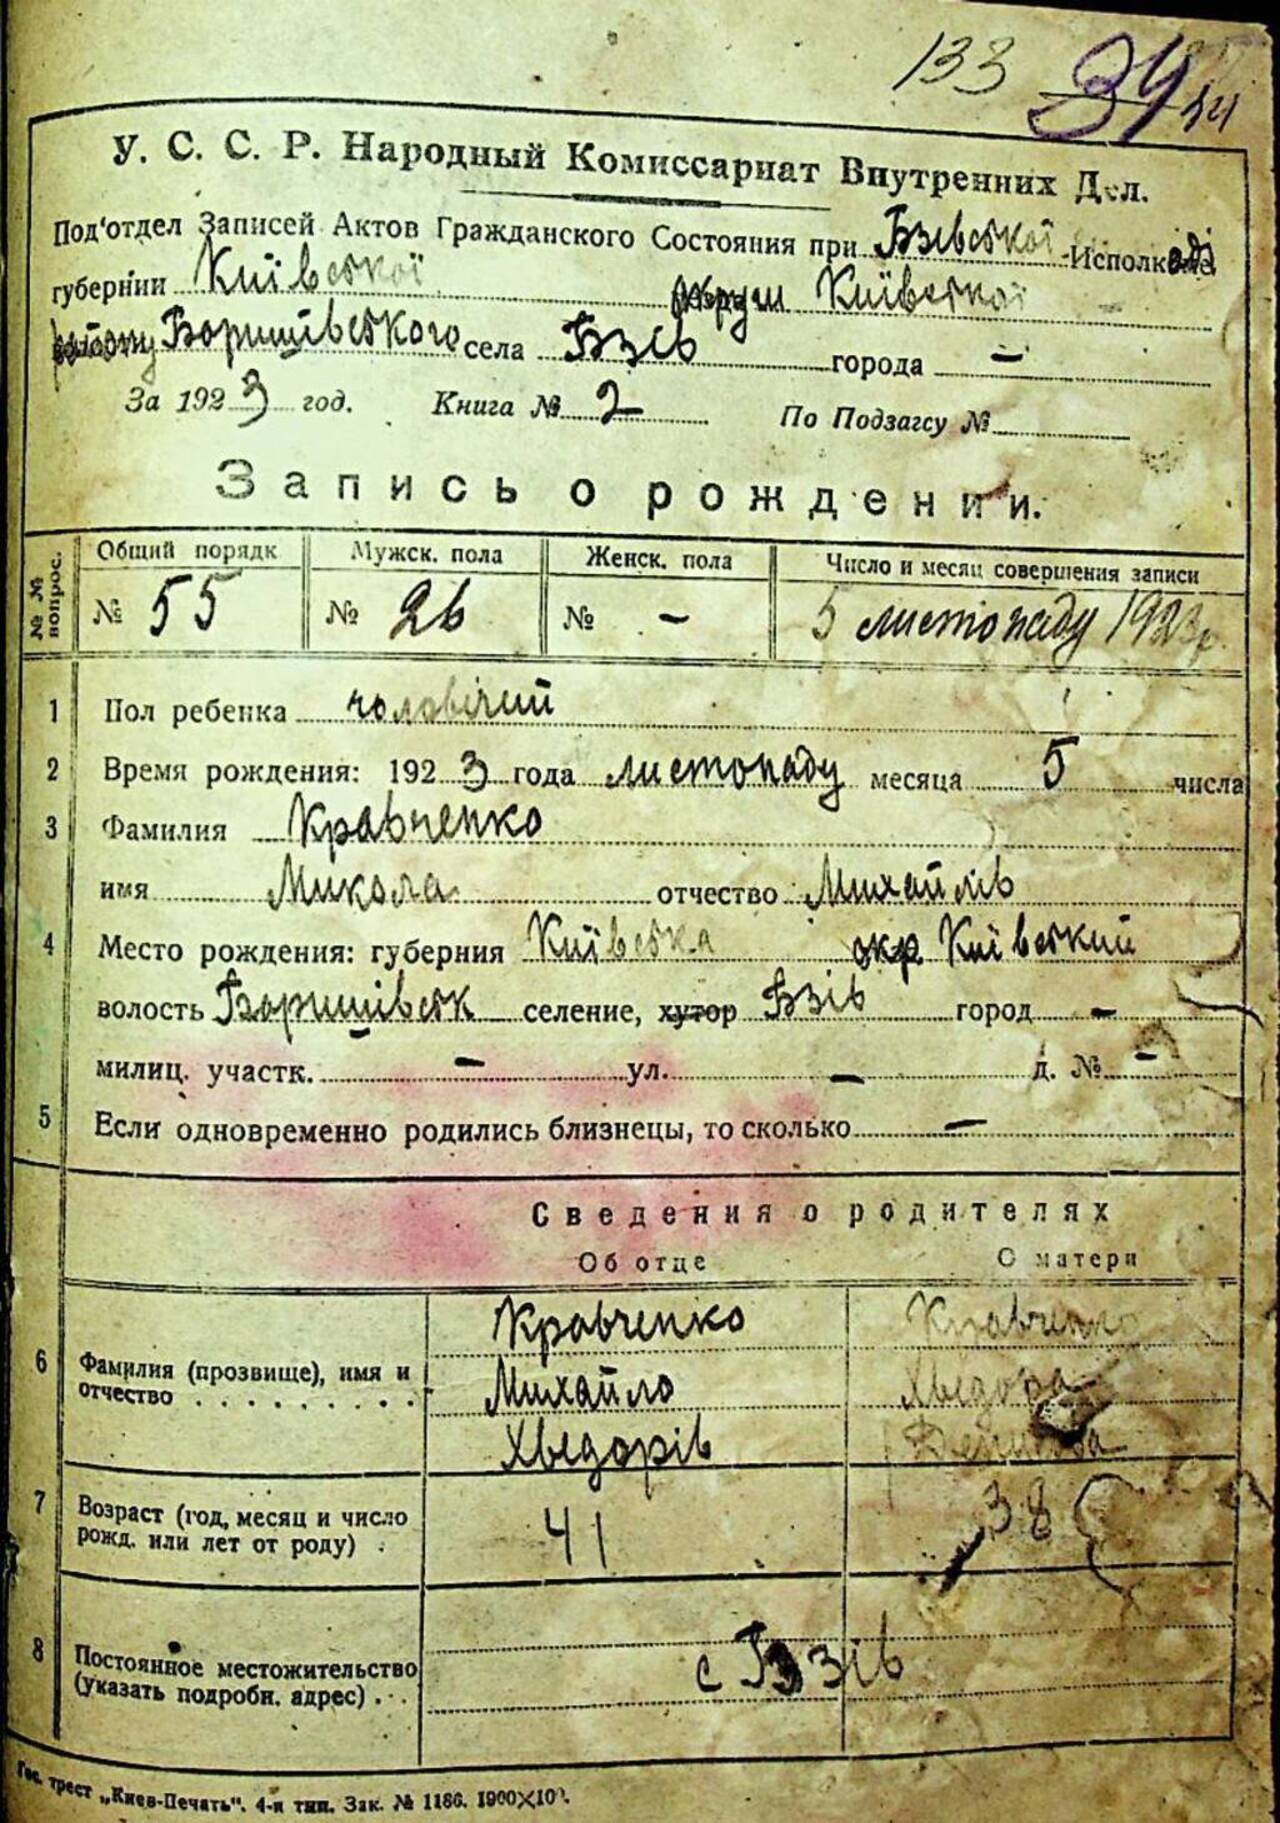 133 34
У. С. С. Р. Народный Комиссариат Внутренних Дел.
Под'отдел Записей Актов Гражданского Состояния при Бзівської Исполк
губернии Київської округи Київської
району Боришівського села Бзів города —
За 1923 год. Книга № 2 По Подзагсу №
Запись о рождении.
№ № вопрос. Общий порядк Мужск. пола Женск. пола Число и месяц совершения записи
№ 55 № 26 № - 5 листопаду 1923 р.
1 Пол ребенка чоловічий
2 Время рождения: 1923 года листопаду месяца 5 числа
3 Фамилия Кравченко
имя Микола отчество Михайлів
4 Место рождения: губерния Київська окр. Київський
волость Боришівськ селение, хутор Бзів город -
милиц. участк. - ул. - д. № -
5 Если одновременно родились близнецы, то сколько -
Сведения о родителях
Об отце О матери
Кравченко Кравченко
6 Фамилия (прозвище), имя и Михайло Хведора
отчество . . . . . . . . . Хведорів
7 Возраст (год, месяц и число 41 38
рожд. или лет от роду) .
8 Постоянное местожительство с Бзів
(указать подробн. адрес) . . .
Гос. трест „Киев-Печать". 4-я тип. Зак. № 1186. 1900×10